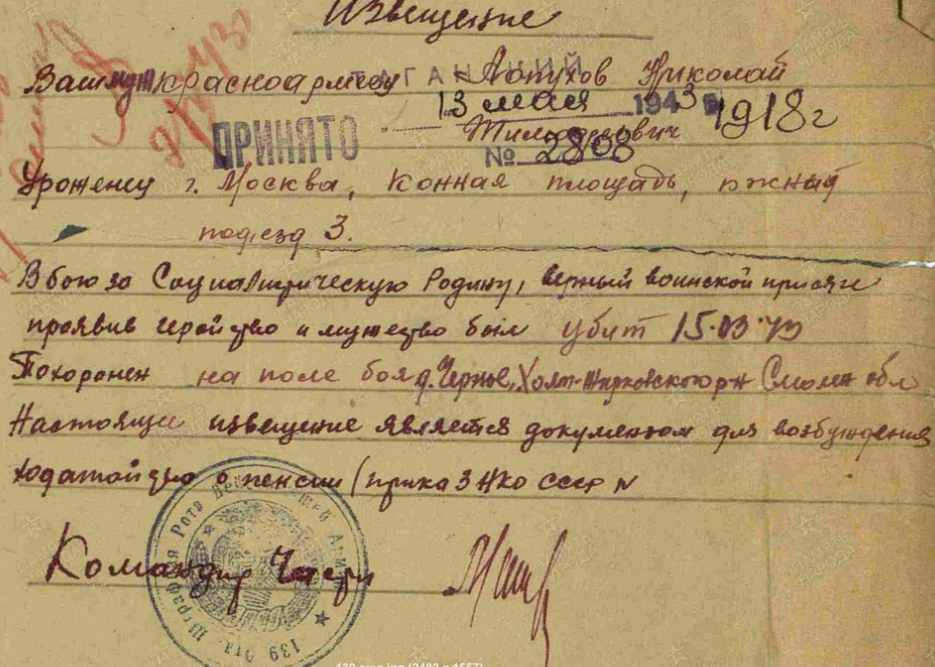 Извещение
Ваш муж красноармеец Лопухов Николай
ТАГАНСКИЙ
13 мая 1943 г
1918 г
ПРИНЯТО
№ 2808
Уроженец г. Москва, Конная площадь, южный
подезд 3.
В бою за Социалистическую Родину, верный воинской присяге
проявив геройство и мужество был убит 15.03.43
Похоронен на поле боя д. Чернов, Холм-Жирковского р-н Смолен обл
Настоящие извещение является документом для возбуждения
ходатайства о пенсии (приказ НКО СССР N
Командир Части
139 Отд. Штрафная Рота Армии